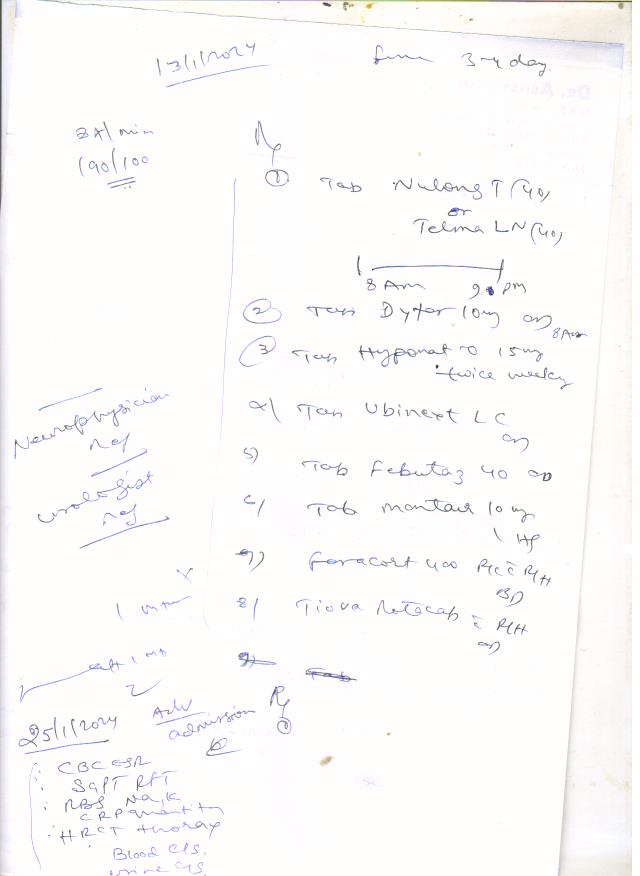 13/1/2024
3-4 day.
/min
190/100
Rx
① Tab Nulong T (40)
or
Telma LN (40)
8 Am 9 pm
② Tab Dytor 10mg OD
8 Am
③ Tab Hyponat-O 15mg
twice weekly
4/ Tab Ubinext LC
OD
5) Tab Febutaz 40 OD
6/ Tab Montair 10mg
1 HS
7) Foracort 400 R/C c̄ R/H
BD
8/ Tiova Rotacap c̄ R/H
OD
Neurophysician
ref
urologist
ref
X
1 
aft 1 mth
25/1/2024
Adv
admission
Rx
①
CBC ESR
SGPT RFT
RBS Na, K
CRP quantity
HRCT thorax
Blood C/S.
Urine C/S.